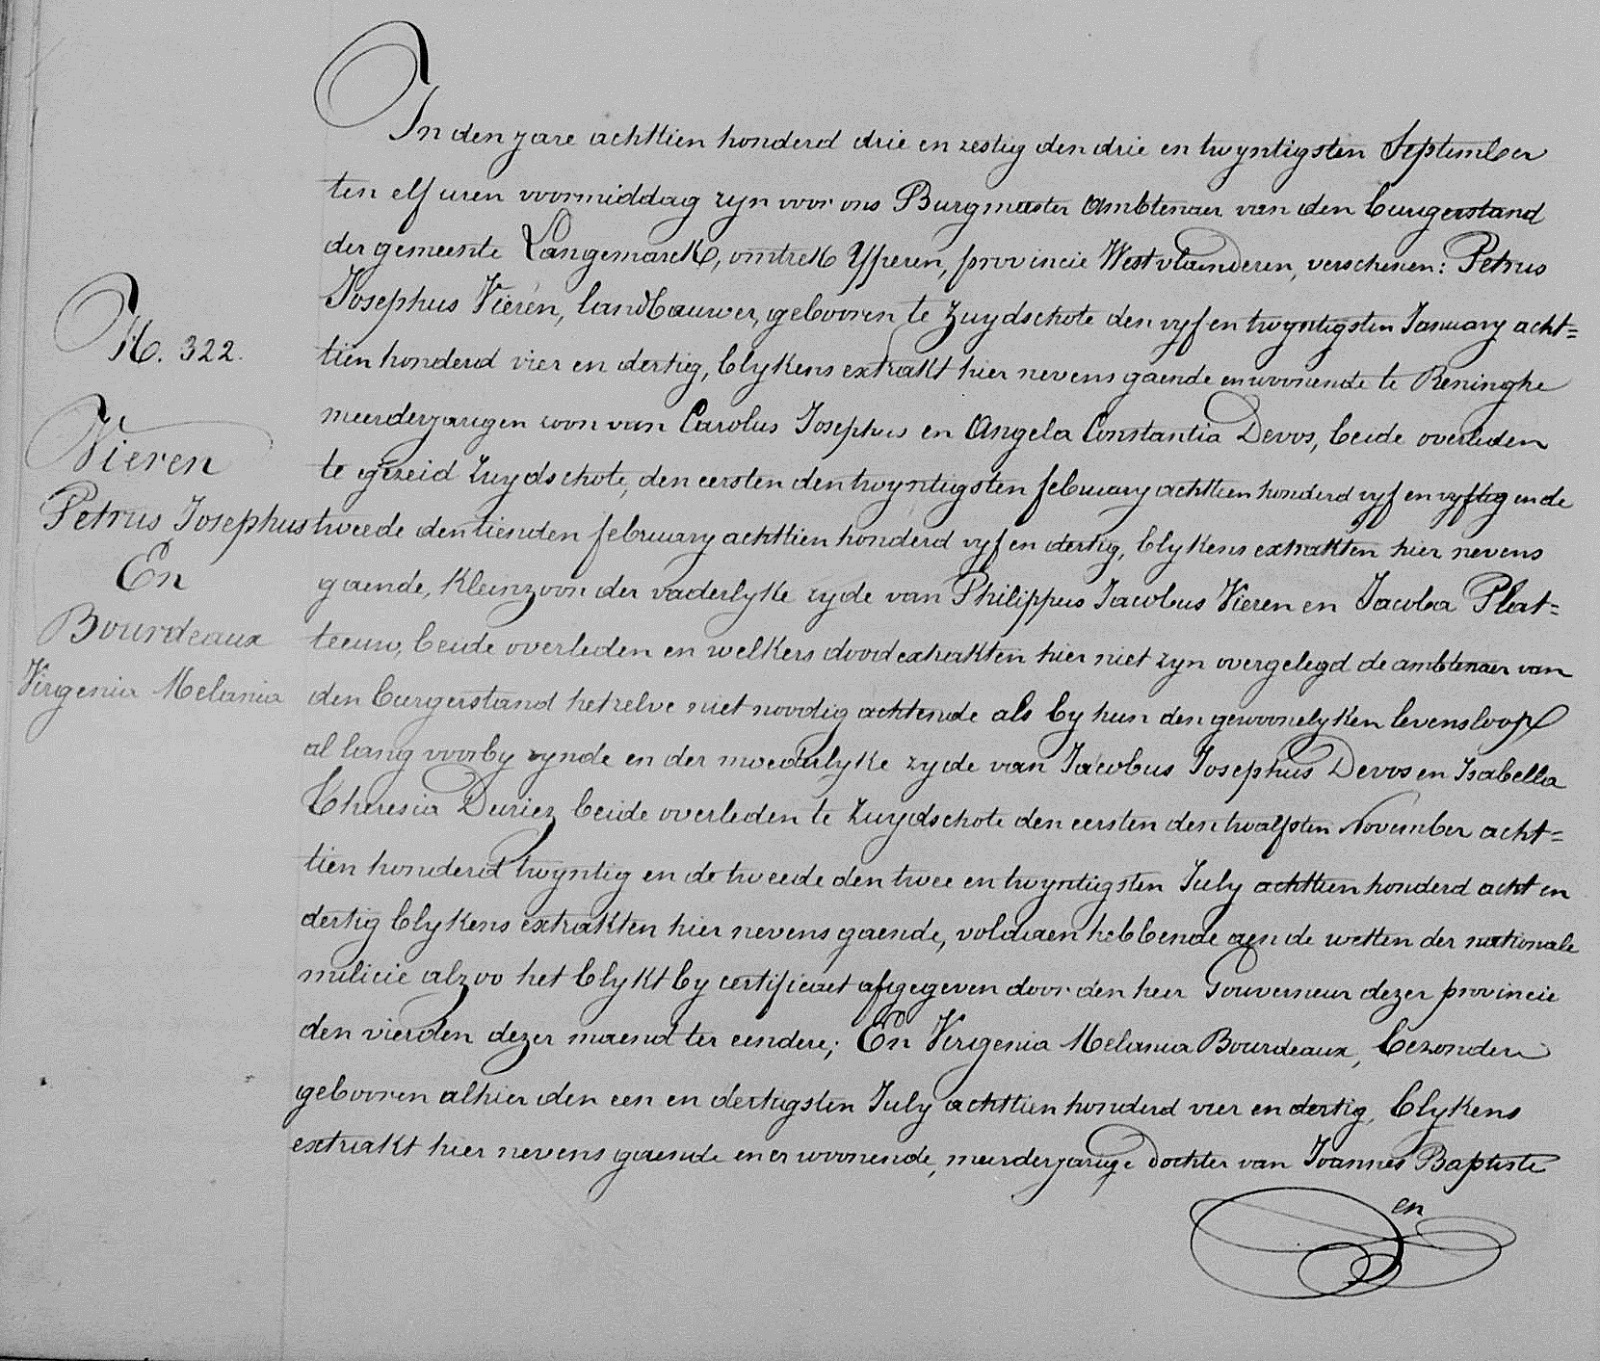 In den jare achttien honderd drie en zestig den drie en twyntigsten September
ten elf uren voormiddag zyn voor ons Burgmeester Ambtenaer van den burgerstand
der gemeente Langemarck, omtrek Yperen, provincie Westvlaenderen, verschenen: Petrus
Josephus Vieren, landbauwer, gebooren te Zuydschote den vyf en twyntigsten January acht=
tien honderd vier en dertig, blykens extrakt hier nevens gaende en woonende te Reninghe
meerderjarigen zoon van Carolus Josephus en Angela Constantia Devos, beide overleden
te gezeid Zuydschote, den eersten den twyntigsten february achttien honderd vyf en vyftig en de
tweede den tienden february achttien honderd vyf en dertig, blykens extrakten hier nevens
gaende, kleinzoon der vaderlyke zyde van Philippus Jacobus Vieren en Jacoba Plat=
teeuw, beide overleden en welkers dood extrakten hier niet zyn overgelegd de ambtenaer van
den burgerstand hetzelve niet noodig achtende als by hun den gewoonelyken levensloop
al lang voorby zynde en der moederlyke zyde van Jacobus Josephus Devos en Isabella
Theresia Duriez beide overleden te Zuydschote den eersten den twalfsten November acht=
tien honderd twyntig en de tweede den twee en twyntigsten July achttien honderd acht en
dertig blykens extrakten hier nevens gaende, voldaen hebbende aen de wetten der nationale
milicie alzoo het blykt by certificaet afgegeven door den heer Gouverneur dezer provincie
den vierden dezer maend ter eendere; En Virgenia Melania Bourdeaux, bezondere
gebooren alhier den een en dertigsten July achttien honderd vier en dertig, blykens
extrakt hier nevens gaende en er woonende, meerderjarige dochter van Joannes Baptiste
en
N. 322.
Vieren
Petrus Josephus
En
Bourdeaux
Virgenia Melania